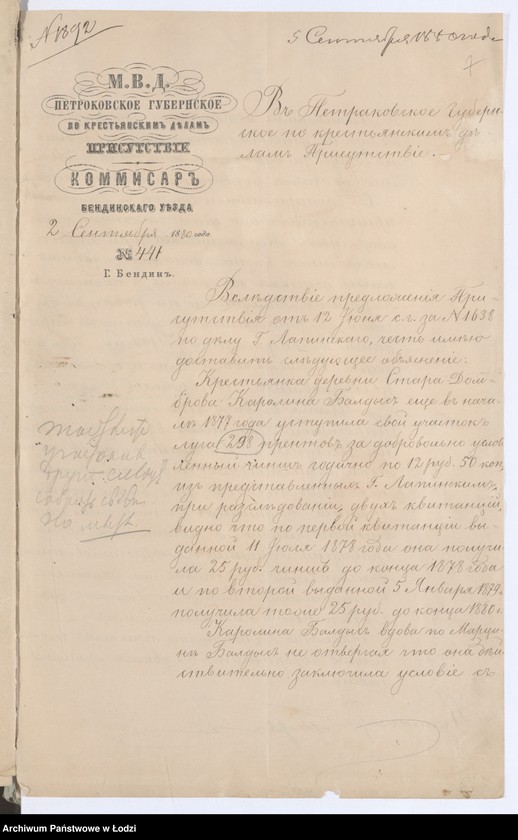 N 1892
5 Сентября 1880 года
7
М.В.Д.
ПЕТРОКОВСКОЕ ГУБЕРНСКОЕ
ПО КРЕСТЬЯНСКИМЪ ДѢЛАМЪ
ПРИСУТСТВІЕ
КОММИСАРЪ
БЕНДИНСКАГО УѢЗДА
2 Сентября 1880 года
№ 441
Г. Бендинъ.
Въ Петраковское Губерн-
ское по крестьянскимъ дѣ-
ламъ Присутствіе.
Вслѣдствіе предложенія При-
сутствія отъ 12 Іюня с.г. за N 1638
по дѣлу Г. Лапинскаго, честь имѣю
доставить слѣдующее объясненіе:
Крестьянка деревни Стара-Дом-
брова Каролина Балдысъ еще въ нача-
лѣ 1877 года уступила свой участокъ
луга 298 прентовъ за добровольно услов-
ленный чиншъ годично по 12 руб. 50 коп.
изъ представленныхъ Г. Лапинскимъ,
при разслѣдованіи, двухъ квитанцій,
видно что по первой квитанціи вы-
данной 11 Іюля 1878 года она получи-
ла 25 руб. чиншъ до конца 1878 года
и по второй выданной 5 Января 1879 г.
получила тоже 25 руб. до конца 1880 г.
Каролина Балдысъ вдова по Марци-
нѣ Балдысъ не отвергая что она дѣй-
ствительно заключила условіе съ
Archiwum Państwowe w Łodzi